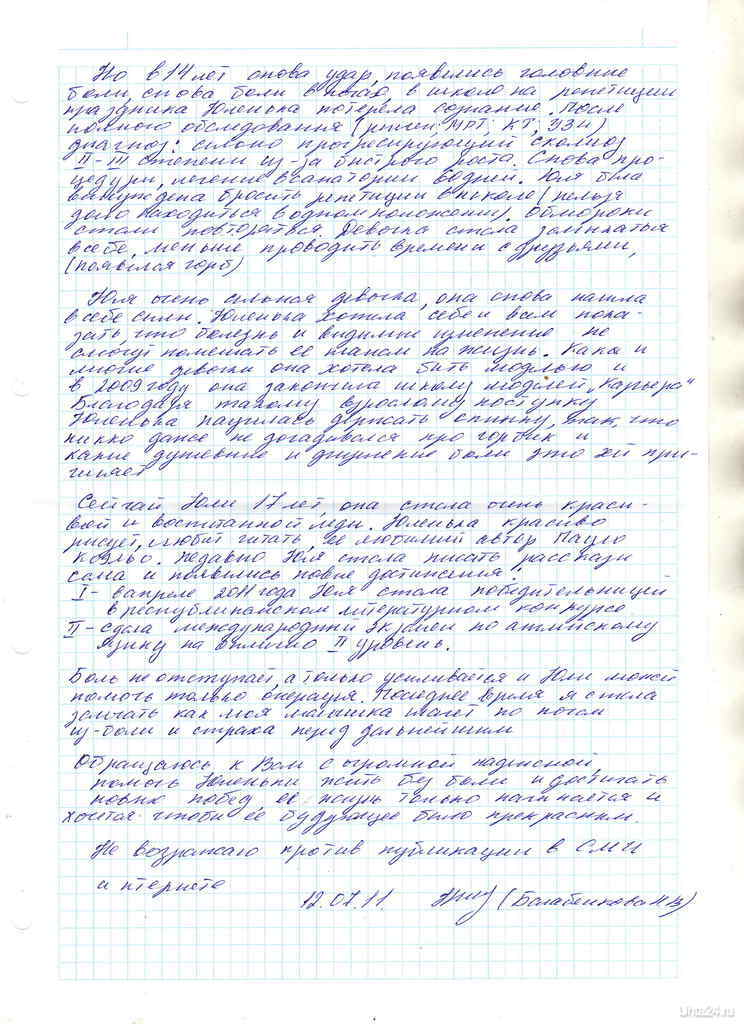 Но в 14 лет снова удар, появились головные
боли, снова боли в ногах, в школе на репетиции
праздника Юленька потеряла сознание. После
полного обследования (рентген, МРТ, КТ, УЗИ)
диагноз: сильно прогрессирующий сколиоз
II-III степени из-за быстрого роста. Снова про-
цедуры, лечение в санатории водней. Юля была
вынуждена бросить репетиции в школе (нельзя
долго находиться в одном положении). Обмороки
стали повторяться. Девочка стала замыкаться
в себе, меньше проводить времени с друзьями,
(появился горб)
Юля очень сильная девочка, она снова нашла
в себе силы. Юленька хотела себе и вам пока-
зать, что болезнь и видимые изменения не
смогут помешать её планам на жизнь. Как и
многие девочки она хотела быть моделью и
в 2009 году она закончила школу моделей „Карьера"
Благодаря такому взрослому поступку
Юленька научилась держать спинку, так, что
никто даже не догадывался про горбик и
какие душевные и физические боли это ей при-
чиняет
Сейчас Юли 17 лет, она стала очень краси-
вой и воспитанной леди. Юленька красиво
рисует, любит читать, её любимый автор Пауло
Коэльо. Недавно Юля стала писать рассказы
сама и появились новые достижения:
I - в апреле 2011 года Юля стала победительницей
в республиканском литературном конкурсе
II - сдала международный экзамен по английскому
языку на отлично II уровень.
Боль не отступает, а только усиливается и Юли может
помочь только операция. Последнее время я стала
замечать как моя малышка плачет по ночам
из-боли и страха перед дальнейшим
Обращаюсь к Вам с огромной надеждой,
помочь Юленьки жить без боли и достигать
новых побед, её жизнь только начинается и
хочется чтобы её будующее было прекрасным.
Не возражаю против публикации в СМИ
и интернете
12.07.11. (Балабенкова Н.В)
Uhta24.ru